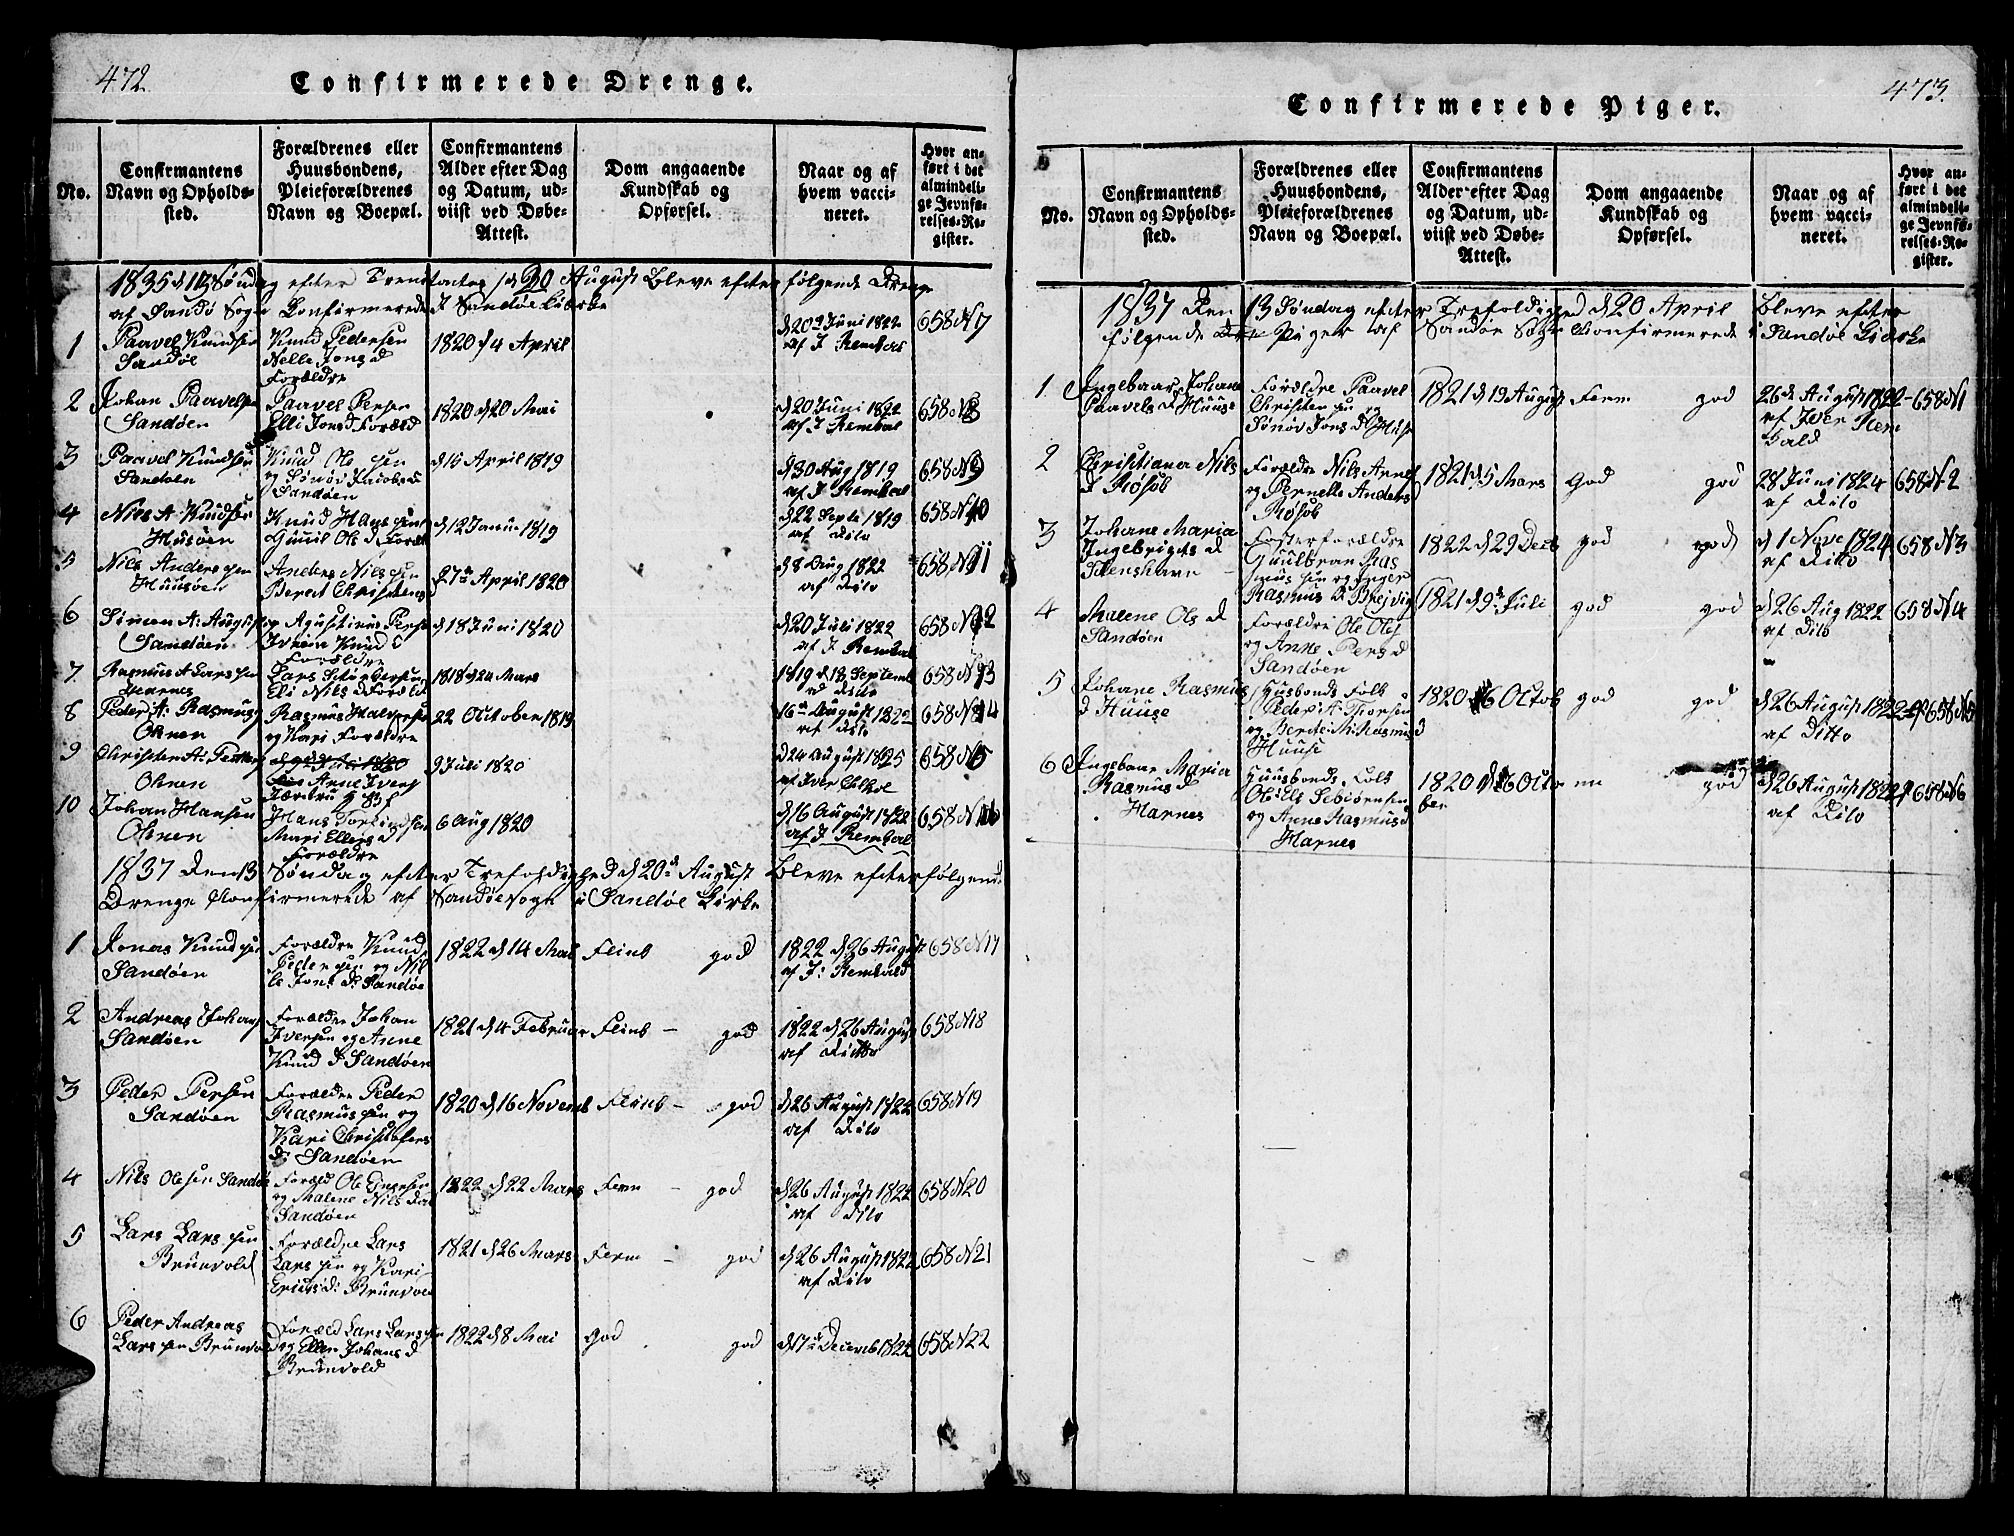 472.
Confirmerede Drenge.
No.
Confirmantens
Navn og Opholds-
sted.
Forældrenes eller
Huusbondens,
Pleieforældrenes
Navn og Boepæl.
Confirmantens
Alder efter Dag
og Datum, ud-
viist ved Døbe-
Attest.
Dom angaaende
Kundskab og
Opførsel.
Naar og af
hvem vacci-
neret.
Hvor an-
ført i det
almindeli-
ge Jevnfø-
relses-Re-
gister.
1835 Søndag efter August Bleve efter følgende Drenge
af Sandø Sogn Confirmerede I Sandøe Kirke
1
Paavel Knudsen
Sandøe
Knud Pedersen
Nelle Jons d
Forældre
1820 4 April
d 20 Juni 1822
af J Rembal
658 N 7
2
Johan Paavelsen
Sandøen
Paavel Persen
Elli Jons d Foræld
1820 d 20 Mai
d 20 Juni 1822
af J Rembal
658 N 8
3
Paavel Knudsen
Sandøen
Knud Ole sen
og Sønøv Jacobs d
Sandøen
d 15 April 1819
d 30 Aug 1819
af J Rembal
658 N 9
4
Nils A. Knudsen
Husøen
Knud Hans sen
Gunil Ols d Foræld
d 12 Januu 1819
d 22 Septe 1819
af Dito
658 N 10
5
Nils Anders sen
Huusøen
Anders Nils sen
Beret Christens d
27 April 1820
d 8 Aug 1822
af Dito
658 N 11
6
Simen A: August
Sandøen
Agustinus Perse
Knud d
Forældre
d 18 Juni 1820
d 20 Juli 1822
af J Rembal
658 N 12
7
Rasmus A Lars sen
Harnes
Lars
Eli Nils d Foræld
1818 d 24 Mars
1819 d 18 Septemb
af Dito
658 N 13
8
Peder A: Rasmus
Ohnen
Rasmus Halversen
og Kari Forældre
22 October 1819
16 August 1822
af Dito
658 N 14
9
Christen A:
Ohnen
Anne Ivers
9 Juli 1820
d 24 August 1825
af Iver
658 N 15
10
Johan Hansen
Ohnen
Hans
Mari Ellings d
Forældre
6 Aug 1820
d 16 August 1822
af J Rembal
658 N 16
1837 Den 13 Søndag efter Trefoldighed d 20 August Bleve efter følgende
Drenge Confirmerede af Sandøe Sogn i Sandøe Kirke
1
Jonas Knud sen
Sandøen
Forældre Knud
Peder sen og Nil
le Jons d: Sandøe
1822 d 14 Mai
Flink
god
1822 d 26 August
af J: Rembald
658 N 17
2
Andreas Johans
Sandøen
Forældre Johan
Iversen og Anne
Knud d Sandøen
1821 d 4 Februar
Flink –
god
1822 d 26 August
af Ditto
658 N 18
3
Peder Persen
Sandøen
Forældre Peder
Rasmus sen og
Kari Christofers
d: Sandøen
1820 d 16 Novemb
Flink –
god
d 26 August 1822
af Dito
658 N 19
4
Nils Olsen Sandø
Foræld Ole Einersen
og Malene Nils d
Sandøen
1822 d 22 Mars
Ferm –
god
d 26 August 1822
af Dito
658 N 20
5
Lars Lars sen
Brunvold
Forældre Lars
Lars sen og Kari
Erichs d: Brunvol
1821 d 26 Mars
Ferm –
god
d 26 August 1822
af Dito
658 N 21
6
Peder Andreas
Lars sen Brunvol
Foræld Lars Lars sen
og Ellen Johans d
Brunvold
1822 d 8 Mai
god
god
d 17 Decemb 1822
658 N 22
473.
Confirmerede Piger.
No.
Confirmantens
Navn og Opholds-
sted.
Forældrenes eller
Huusbondens,
Pleieforældrenes
Navn og Boepæl.
Confirmantens
Alder efter Dag
og Datum, ud-
viist ved Døbe-
Attest.
Dom angaaende
Kundskab og
Opførsel.
Naar og af
hvem vacci-
neret.
Hvor an-
ført i det
almindeli-
ge Jevnfø-
relses-Re-
gister.
1837 Den 13 Søndag efter Trefoldighed d 20 April Bleve efter
følgende Piger af Sandøe Sogn Confirmerede i Sandøe Kirke
1
Ingebaar Johane
Paavels d Huuse
Forældre Paavel
Christen sen og
Sønøv Jons d Huse
1821 d 19 August
Ferm
god
26 August 1822
af Iver Rem
bald
658 N 1
2
Christiana Nils
d Røsok
Forældre Nils Anders
og Pernelle Anders
Røsok
1821 d 5 Mars
God
god
28 Juni 1824
af Dito
658 N 2
3
Johane Maria
Ingebrigts d
Steenshavn
Fosterforældre
Guulbran Ras
mus sen og Inger
Rasmus d Breivig
1822 d 29 Decb
god
god
d 1 Nove 1824
af Ditto
658 N 3
4
Malene Ols d
Sandøen
Forældre Ole Ols
og Anne Pers d
Sandøen
1821 d 9 Juli
god
god
d 26 Aug 1822
af Dito
658 N 4
5
Johane Rasmus
d Huuse
Husbonds Folk
Peder A: Thorsen
og Berte M: Rasmus d
Huuse
1820 16 Octob
god
god
d 26 August 1822
af Ditto
658 N 5
6
Ingebaar Maria
Rasmus d
Harnes
Huusbonds Folk
og Anne Rasmus d
Harnes
1820 d 16 Octo
ber
god
d 26 August 1822
af Dito
658 N 6